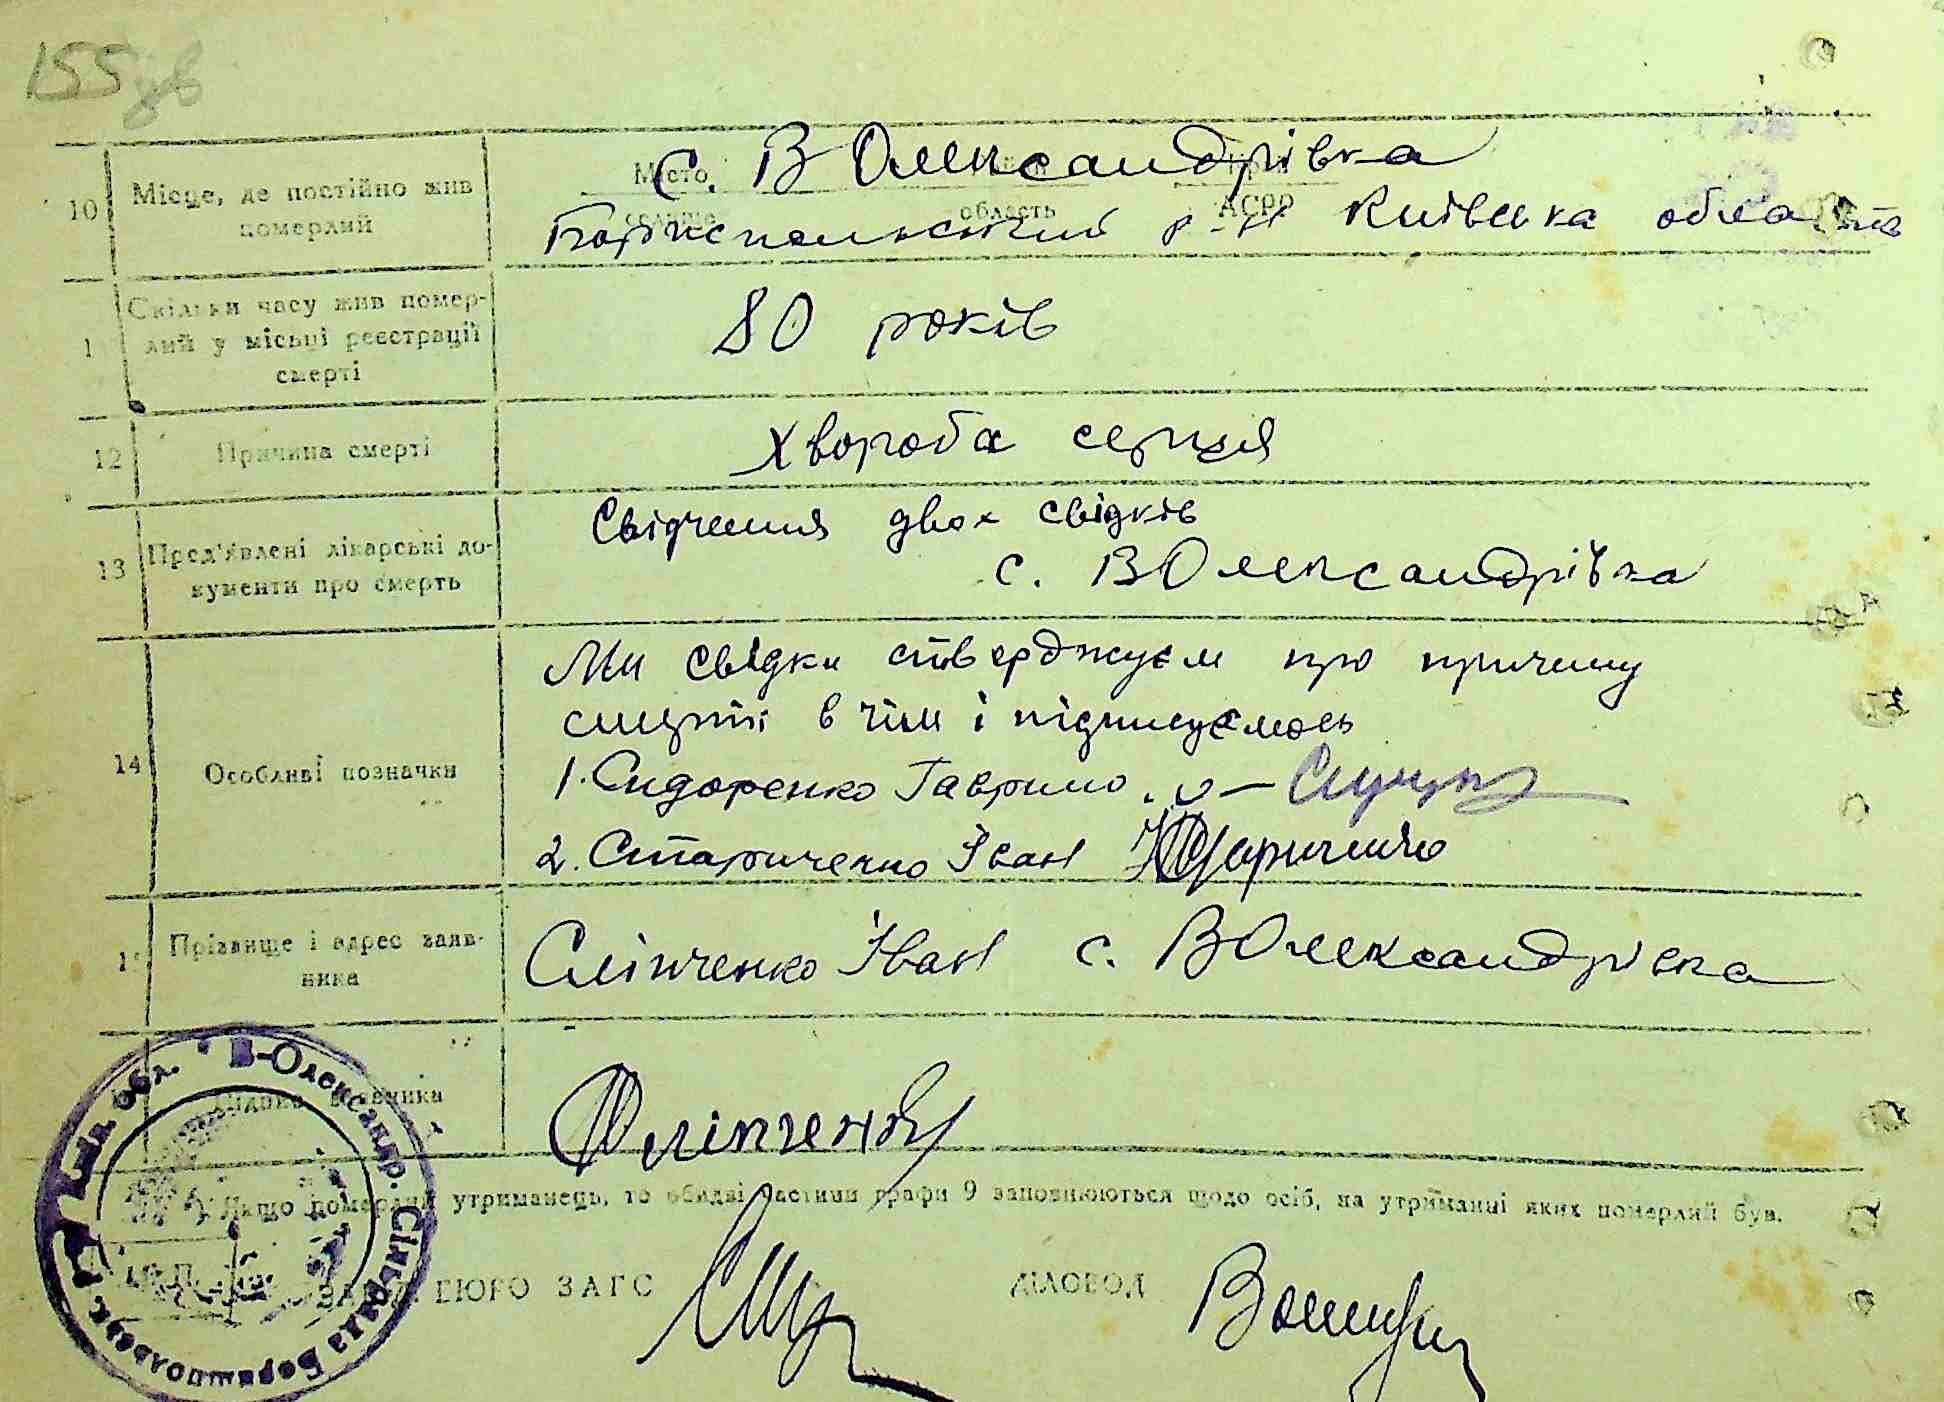 155 зв
10 Місце, де постійно жив померлий
Місто область АСРР
с. В Олександрівка
Бориспольський р-н Київська область
1 Скільки часу жив померлий у місьці реєстрації смерті
80 років
12 Причина смерті
Хвороба серця
13 Пред'явлені лікарські документи про смерть
Свідчення двох свідків
с. В Олександрівка
14 Особливі позначки
Ми свідки стверджуєм про причину
смерті в чім і підписуємось
1. Сидоренко Гаврило
2. Стариченко Іван
Прізвище і адрес заявника
Сліпченко Іван с. В Олександрівка
Сліпченко
Якщо померлий утриманець, то обидві частини графи 9 заповнюються щодо осіб, на утриманні яких померлий був.
БЮРО ЗАГС
ДІЛОВОД
обл. В-Олександр. Сільрада